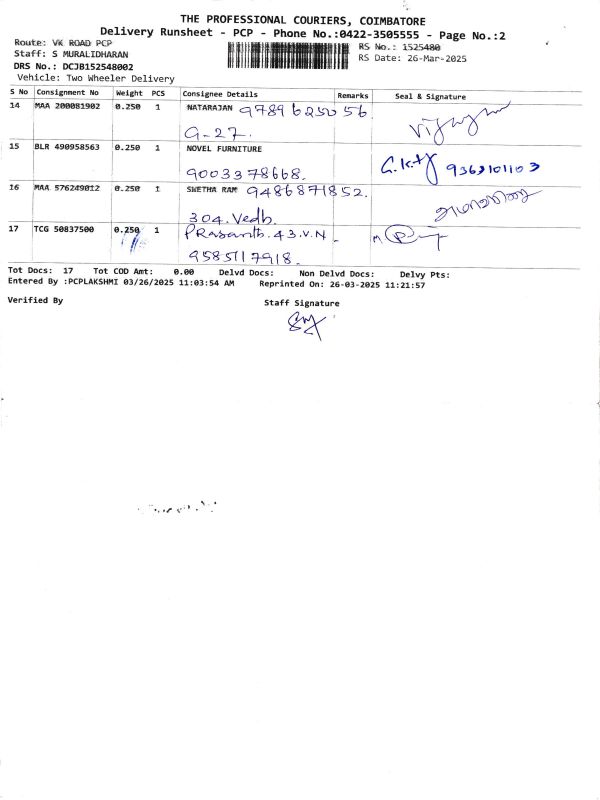 THE PROFESSIONAL COURIERS, COIMBATORE
Delivery Runsheet - PCP - Phone No.:0422-3505555 - Page No.:2
Route: VK ROAD PCP RS No.: 1525480
Staff: S MURALIDHARAN RS Date: 26-Mar-2025
DRS No.: DCJB152548002
Vehicle: Two Wheeler Delivery
S No Consignment No Weight PCS Consignee Details Remarks Seal & Signature
14 MAA 200081902 0.250 1 NATARAJAN 9789625056
G-27.
15 BLR 490958563 0.250 1 NOVEL FURNITURE
9003378668. 9363101103
16 MAA 576249012 0.250 1 SWETHA RAM 9486871852.
304.Vedh.
17 TCG 50837500 0.250 1 PRasanth.43.V.N
9585117918.
Tot Docs: 17 Tot COD Amt: 0.00 Delvd Docs: Non Delvd Docs: Delvy Pts:
Entered By :PCPLAKSHMI 03/26/2025 11:03:54 AM Reprinted On: 26-03-2025 11:21:57
Verified By Staff Signature